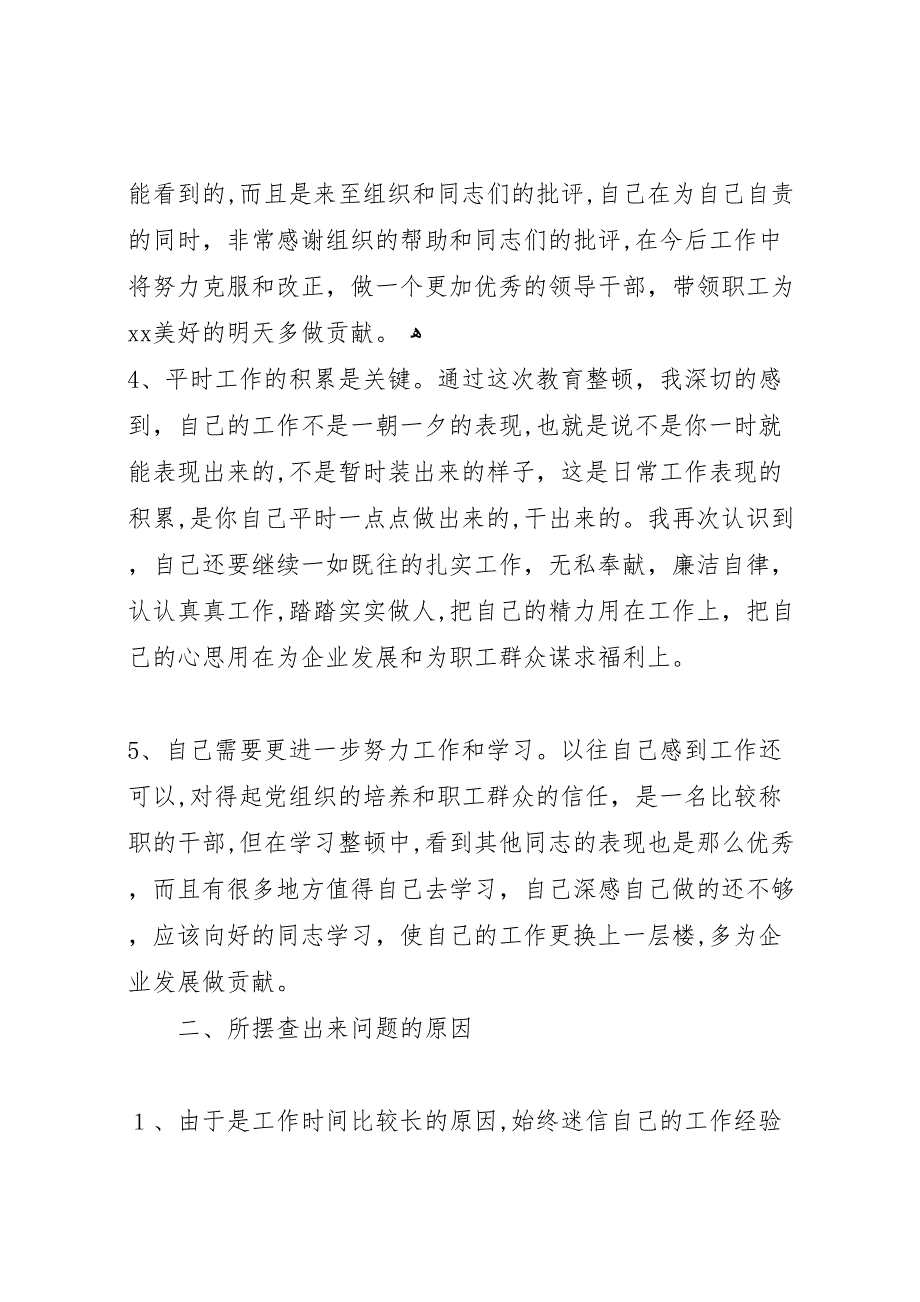 能看到的,而且是来至组织和同志们的批评,自己在为自己自责
的同时，非常感谢组织的帮助和同志们的批评,在今后工作中
将努力克服和改正，做一个更加优秀的领导干部，带领职工为
xx美好的明天多做贡献。ﻫ
4、平时工作的积累是关键。通过这次教育整顿，我深切的感
到，自己的工作不是一朝一夕的表现,也就是说不是你一时就
能表现出来的,不是暂时装出来的样子，这是日常工作表现的
积累,是你自己平时一点点做出来的,干出来的。我再次认识到
，自己还要继续一如既往的扎实工作，无私奉献，廉洁自律，
认认真真工作,踏踏实实做人,把自己的精力用在工作上，把自
己的心思用在为企业发展和为职工群众谋求福利上。
5、自己需要更进一步努力工作和学习。以往自己感到工作还
可以,对得起党组织的培养和职工群众的信任，是一名比较称
职的干部,但在学习整顿中,看到其他同志的表现也是那么优秀
，而且有很多地方值得自己去学习，自己深感自己做的还不够
，应该向好的同志学习，使自己的工作更换上一层楼,多为企
业发展做贡献。
二、所摆查出来问题的原因
１、由于是工作时间比较长的原因,始终迷信自己的工作经验